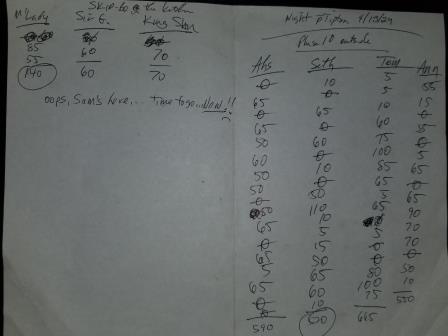 Skip-bo @ the kitchen
Mindy Siz E. King Stan
85 60 70
55
140 60 70
oops, Sam's here... time to go... Now!!
Night 4/13/24
Phase 10 outside
Abs Seth Tom Ann
0 10 5 55
65 0 5 15
0 65 10 0
65 0 60 35
50 60 75 0
60 0 100 5
50 10 85 65
50 0 65 0
0 50 5 65
50 110 65 90
65 10 70
0 5 5 70
65 15 0 0
5 50 80 50
65 65 100 10
0 60 75 550
10
590 665